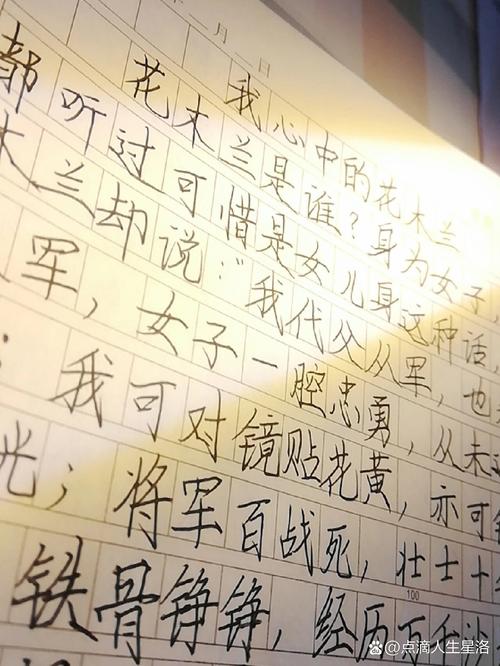 年 月 日
我心中的花木兰
花木兰是谁?身为女子
都听过可惜是女儿身这种话,
木兰却说:“我代父从军,也
军,女子一腔忠勇,从未
;我可对镜贴花黄,亦可
光;将军百战死,壮士十
100
铁骨铮铮,经历
@点滴人生星洛